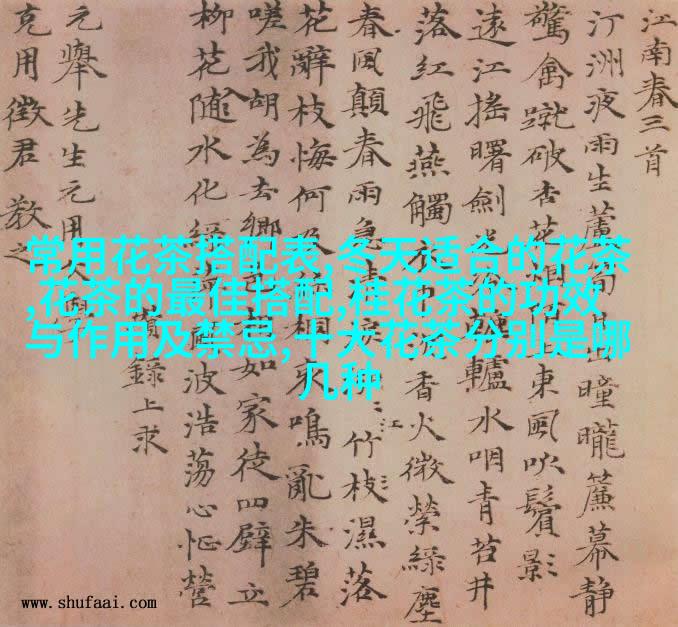 江南春三首
汀洲夜雨生蘆 出瞳曨簾幕静
驚禽蹴破杏花烟 東風吹鬢影
遠江搖曙劍 轤水咽青苔井
落紅飛燕觸衣 香火微縈緑塵
春風顛春雨急清淚 竹枝濕落
江
花辭枝悔何及 桐哀鳴亂朱碧
嗟我胡為去鄉 如家徒四壁立
柳花随水化緑 波浩蕩心怔營
錄上求
元舉先生元用文
克用徵君教之
常用花茶搭配表,冬天适合的花茶
,花茶的最佳搭配,桂花茶的功效
与作用及禁忌,十大花茶分别是哪
几种
www.shufaai.com